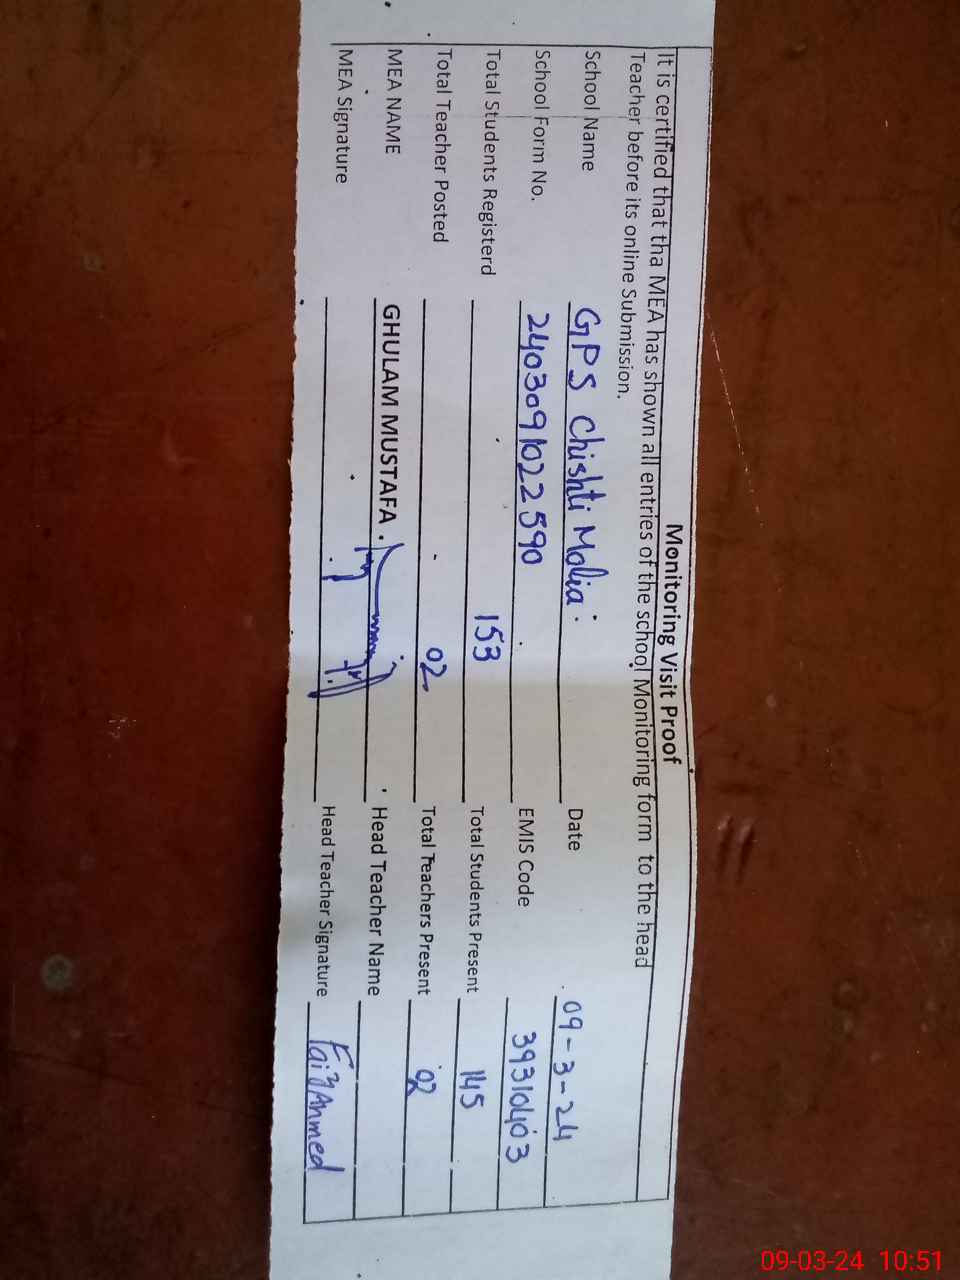 Monitoring Visit Proof
It is certified that tha MEA has shown all entries of the school Monitoring form to the head
Teacher before its online Submission.
School Name GPS Chishti Molia Date 09-3-24
School Form No. 2403091022590 EMIS Code 39310403
Total Students Registerd 153 Total Students Present 145
Total Teacher Posted 02 Total Teachers Present 02
MEA NAME GHULAM MUSTAFA Head Teacher Name
MEA Signature Head Teacher Signature Faiz Ahmed
09-03-24 10:51